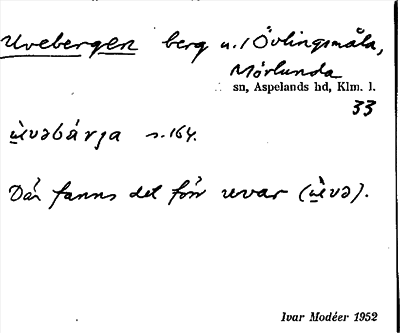 Uvebergen berg u. / Övlingsmåla,
Mörlunda
sn, Aspelands hd, Klm. l.
33
ùvəbárja s. 164.
Där fanns det förr uvar (ùvə).
Ivar Modéer 1952